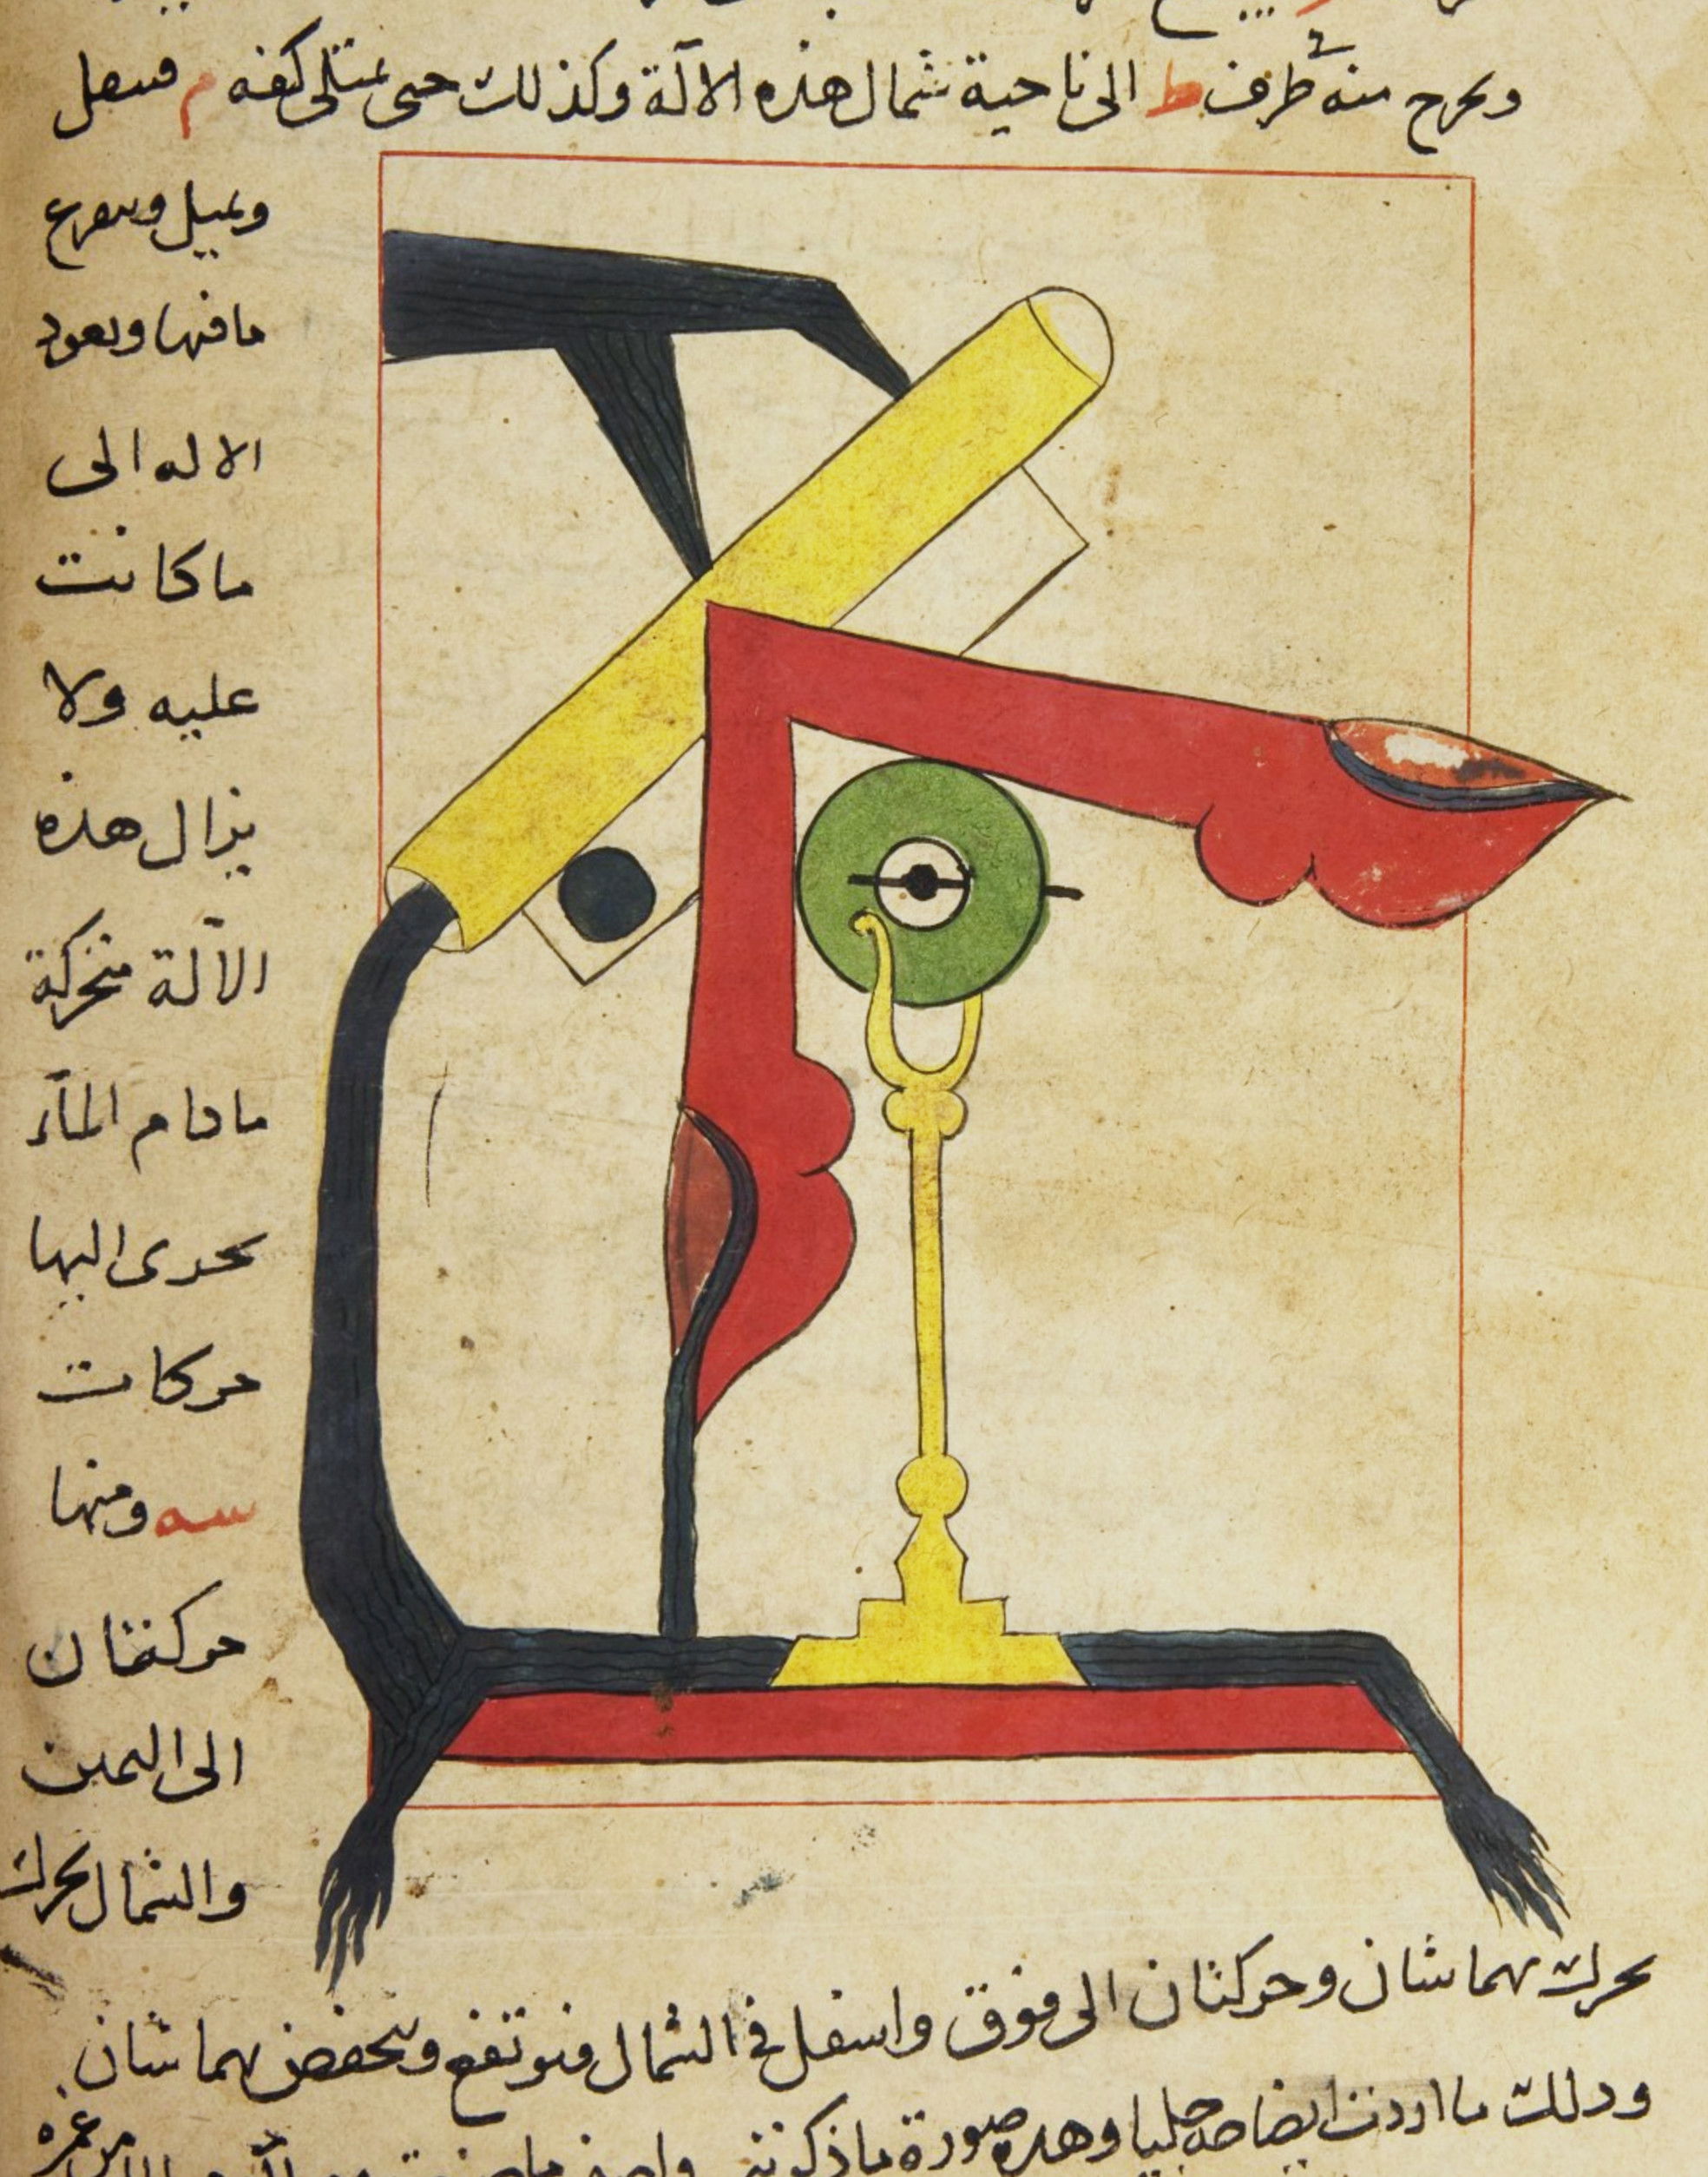 ويخرج منه طرف ط الى ناحية شمال هذه الآلة وكذلك حتى تمتلى كفه م فتثقل
وتميل وتتفرغ
ما فيها وتعود
الاله الى
ما كانت
عليه ولا
يزال هذه
الآلة متحركة
ما دام المآء
يجرى اليها
حركات
سه ومنها
حركتان
الى اليمين
والشمال يحرك
يحرك بهما شان وحركتان الى فوق واسفل فى الشمال فيرتفع وينخفض بهما شان
وذلك ما اردت ايضاحه جليا وهذه صورة ما ذكرته